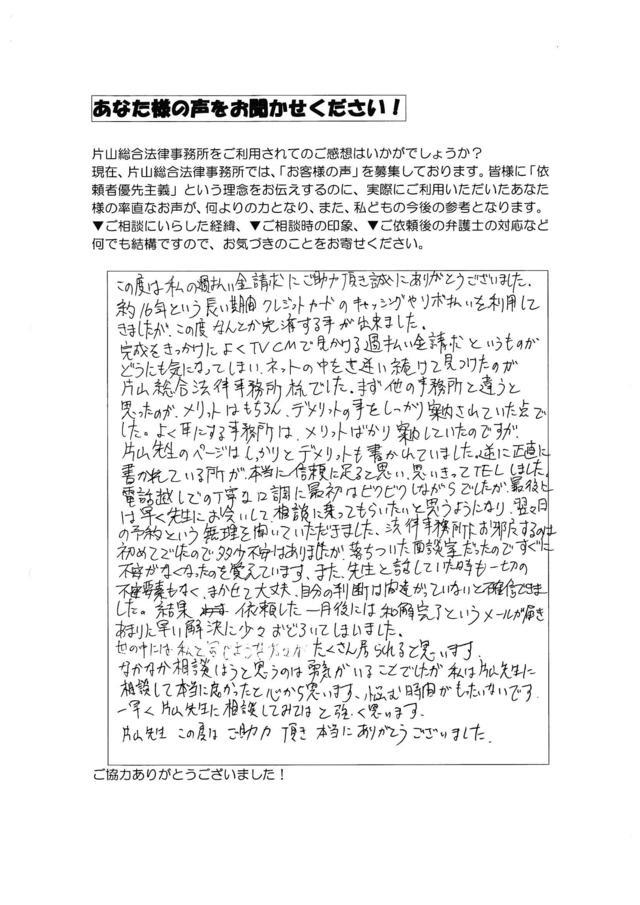 あなた様の声をお聞かせください！
片山総合法律事務所をご利用されてのご感想はいかがでしょうか？
現在、片山総合法律事務所では、「お客様の声」を募集しております。皆様に「依
頼者優先主義」という理念をお伝えするのに、実際にご利用いただいたあなた
様の率直なお声が、何よりの力となり、また、私どもの今後の参考となります。
▼ご相談にいらした経緯、▼ご相談時の印象、▼ご依頼後の弁護士の対応など
何でも結構ですので、お気づきのことをお寄せください。
この度は私の過払い金請求にご助力頂き誠にありがとうございました。
約16年という長い期間クレジットカードのキャッシングやリボ払いを利用して
きましたが、この度なんとか完済する事が出来ました。
完済をきっかけによくTVCMで見かける過払い金請求というものが
どうにも気になってしまい、ネットの中をさ迷い続けて見つけたのが
片山総合法律事務所様でした。まず他の事務所と違うと
思ったのが、メリットはもちろん、デメリットの事をしっかり案内されていた点で
した。よく耳にする事務所は、メリットばかり案内していたのですが、
片山先生のページはしっかりとデメリットも書かれていました。逆に正直に
書かれている所が、本当に信頼に足ると思い、思いきってTELしました。
電話越しでの丁寧な口調に最初はビクビクしながらでしたが、最後に
は早く先生にお会いして、相談に乗ってもらいたいと思うようになり、翌々日
の予約という無理を聞いていただきました。法律事務所にお邪魔するのは
初めてでしたので多少不安はありましたが、落ちついた面談室だったのですぐに
不安がなくなったのを覚えています。また、先生と話していた時も一切の
不安要素もなく、まかせて大丈夫、自分の判断は間違がっていないと確信できま
した。結果 依頼した一月後には和解完了というメールが届き
あまりに早い解決に少々おどろいてしまいました。
世の中には私と同じような方々がたくさん居られると思います。
なかなか相談しようと思うのは勇気がいることでしたが私は片山先生に
相談して本当に良かったと心から思います。悩む時間がもったいないです。
一早く片山先生に相談してみてはと強く思います。
片山先生 この度はご助力頂き本当にありがとうございました。
ご協力ありがとうございました！